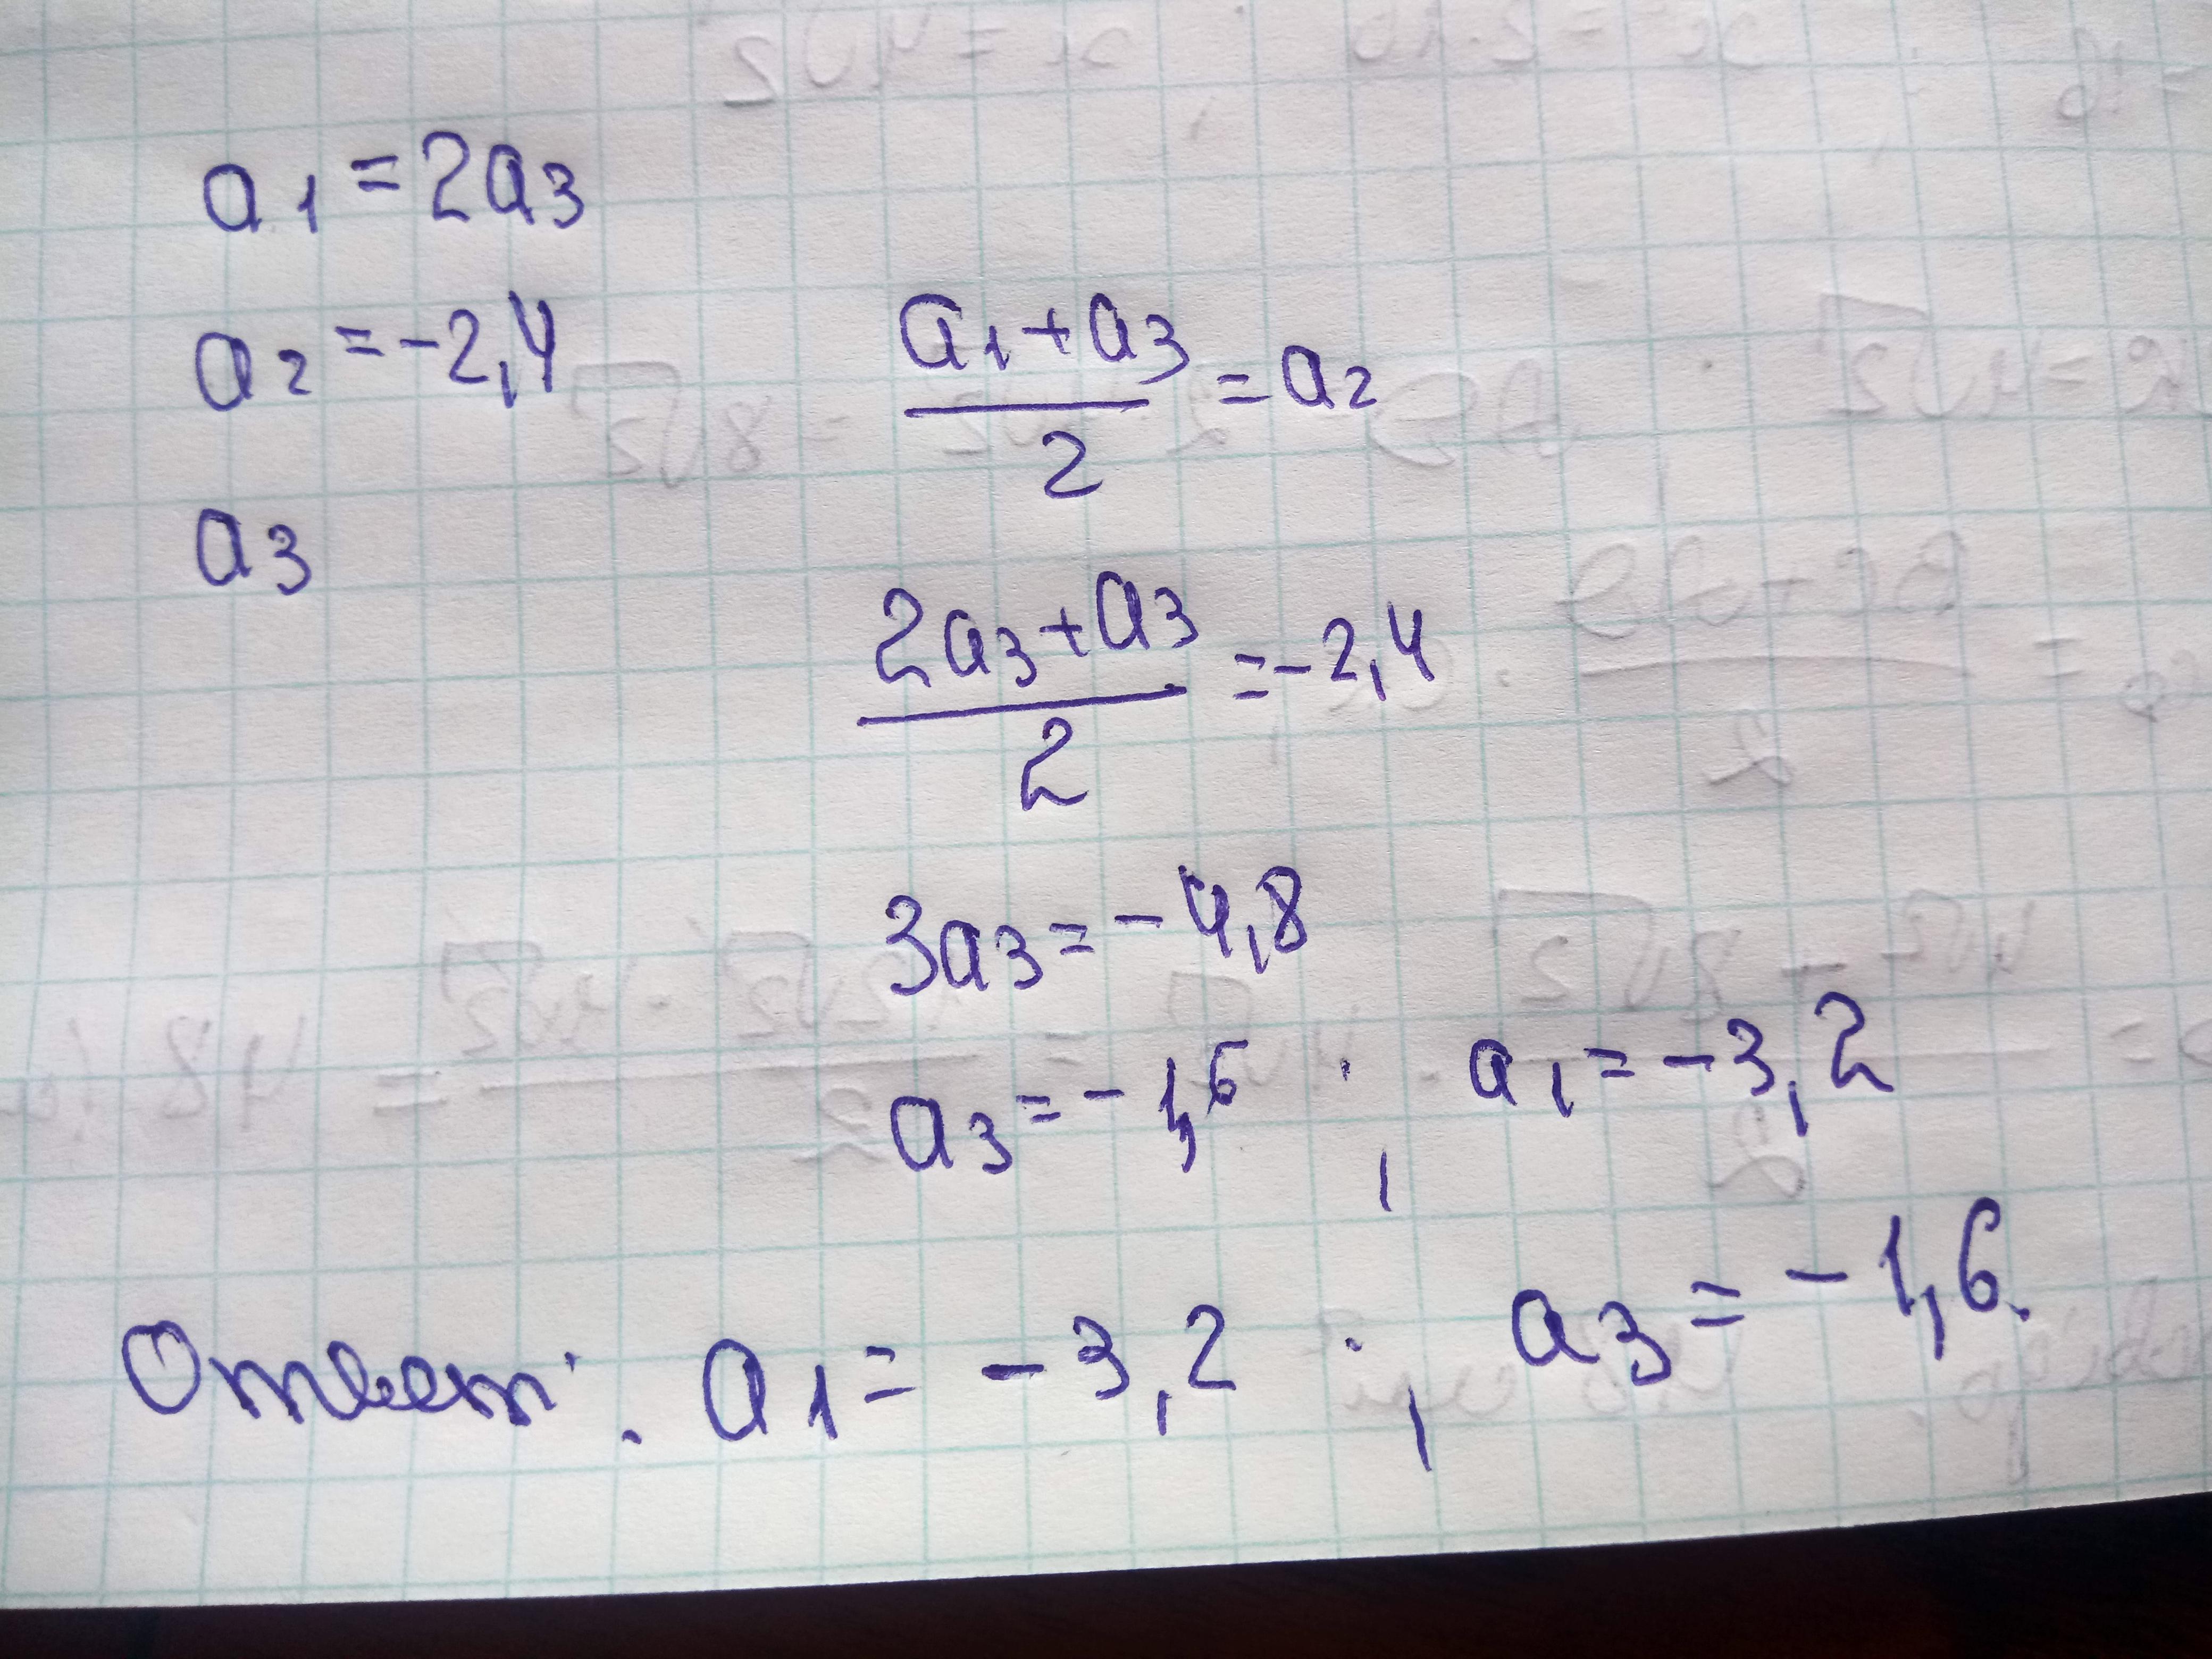 a1 = 2a3
a2 = -2,4
a3
a1 + a3
— = a2
2
2a3 + a3
— = -2,4
2
3a3 = -4,8
a3 = -1,6 ; a1 = -3,2
Ответ: a1 = -3,2 ; a3 = -1,6.